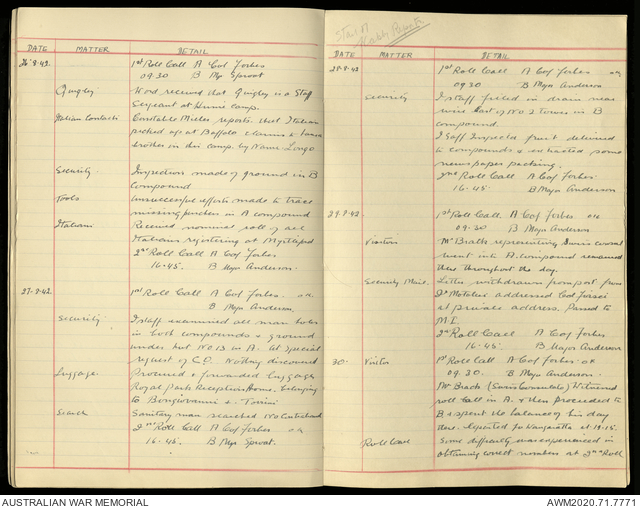 DATE MATTER DETAIL
26.9.42. 1st Roll Call A Col Forbes
09.30 B Mjr Sproat
Quigley Word received that Quigley is a Staff
Sergeant at Hume camp.
Italian Contacts Constable Miller reports that Italian
picked up at Buffalo claims to have
brother in this camp by name Longo
Security Inspection made of ground in B
Compound
Tools Unsuccessful efforts made to trace
missing pinchers in A compound
Italians Received nominal roll of all
Italians registering at Myrtleford
2nd Roll Call A Col Forbes
16.45. B Mjr Anderson.
27.9.42. 1st Roll Call A Col Forbes. o.k.
B Mjr Anderson.
Security I staff examined all man holes
in both compounds & ground
under hut No 13 in A. at special
request of C.O. Nothing discovered
Luggage Procured & forwarded luggage
Royal Park Reception Home. belonging
to Bongiovanni &
Search Sanitary man searched No Contraband
2nd Roll Call A Col Forbes o.k.
16.45. B Mjr Sproat.
DATE MATTER DETAIL
28.9.42 1st Roll Call A Col Forbes o.k.
09.30 B Major Anderson
Security I staff filled in drain near
wire East of No 3 Tower in B
compound.
I Staff Inspected fruit delivered
to compounds & extracted some
newspaper packing.
2nd Roll Call A Col Forbes
16.45. B Major Anderson.
29.9.42. 1st Roll Call A Col Forbes o.k.
09.30 B Mjr Anderson
Visitors Mr representing Swiss consul
went into A. compound remained
there throughout the day.
Security Mail. Letter withdrawn from post from
addressed Col
at private address. Passed to
M.I.
2nd Roll Call A Col Forbes
16.45. B Major Anderson
30. Visitor 1st Roll Call A Col Forbes o.k.
09.30. B Major Anderson.
Mr (Swiss Consulate) Witnessed
roll call in A. & then proceeded to
B & spent the balance of his day
there. Departed for Wangaratta at 19.15.
Roll Call Some difficulty was experienced in
obtaining correct numbers at 2nd Roll
AUSTRALIAN WAR MEMORIAL
AWM2020.71.7771